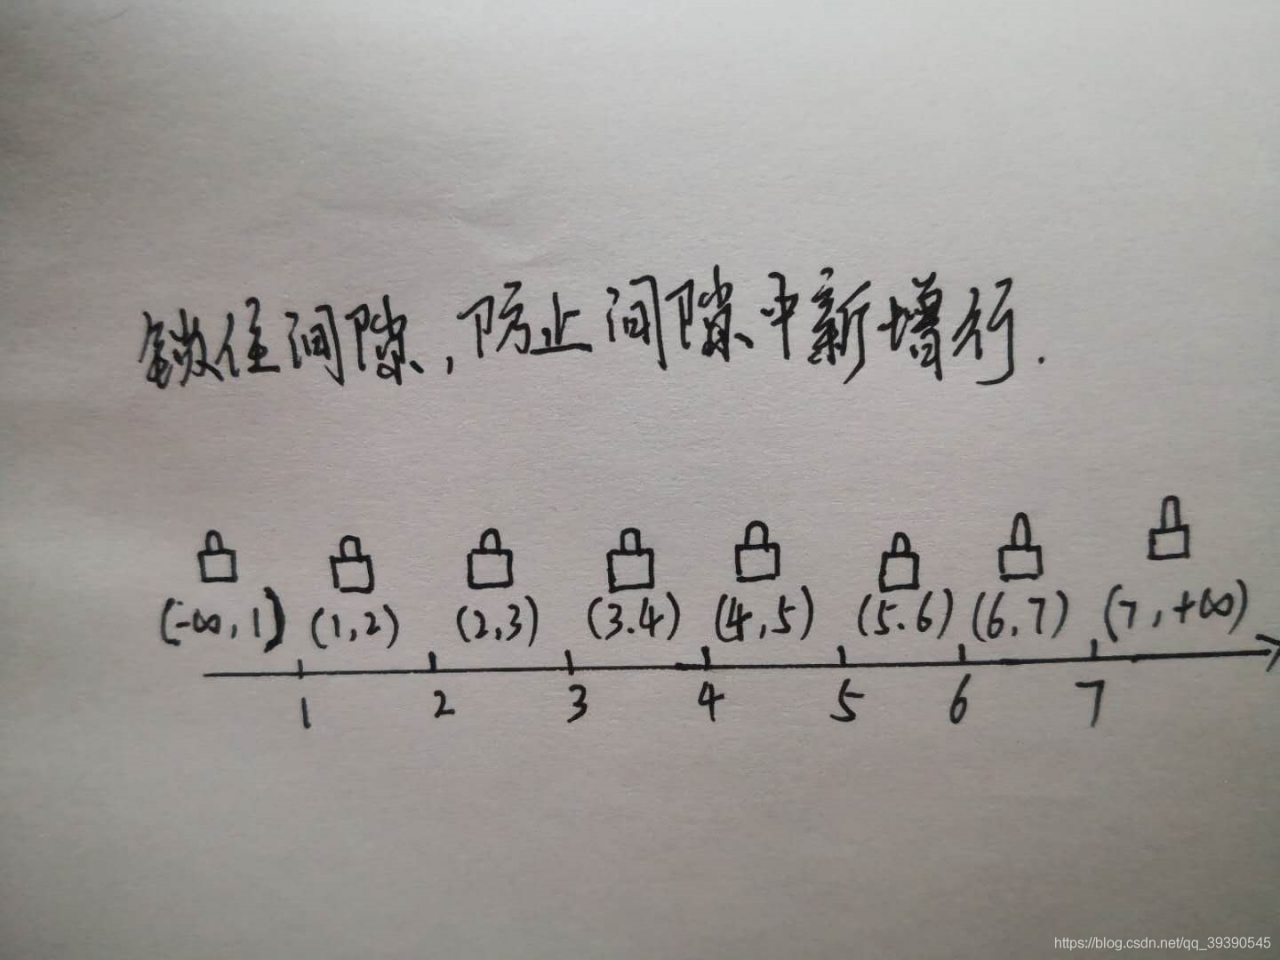 锁住间隙,防止间隙中新增行.
(-∞,1) (1,2) (2,3) (3.4) (4,5) (5.6) (6,7) (7,+∞)
1 2 3 4 5 6 7
https://blog.csdn.net/qq_39390545